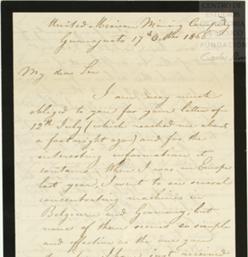 United Mexican Mining Company
Guanajuato 17th 186
My dear Sir
I am very much
obliged to you for your letter of
12th July (which reached me about
a fortnight ago) and for the
interesting information it
contains. When I was in Europe
last year, I went to see several
concentrating machines in
Belgium and Germany, but
none of them seemed so simple
and effective as the one you
I have just received
CENTRO DE
FUNDACIÓN